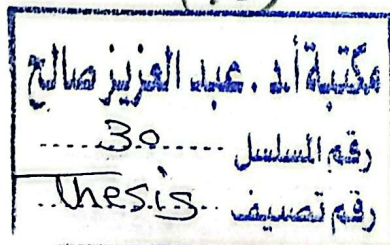 مكتبة أ.د. عبد العزيز صالح
رقم المسلسل ......30.....
رقم تصنيف ..thesis..